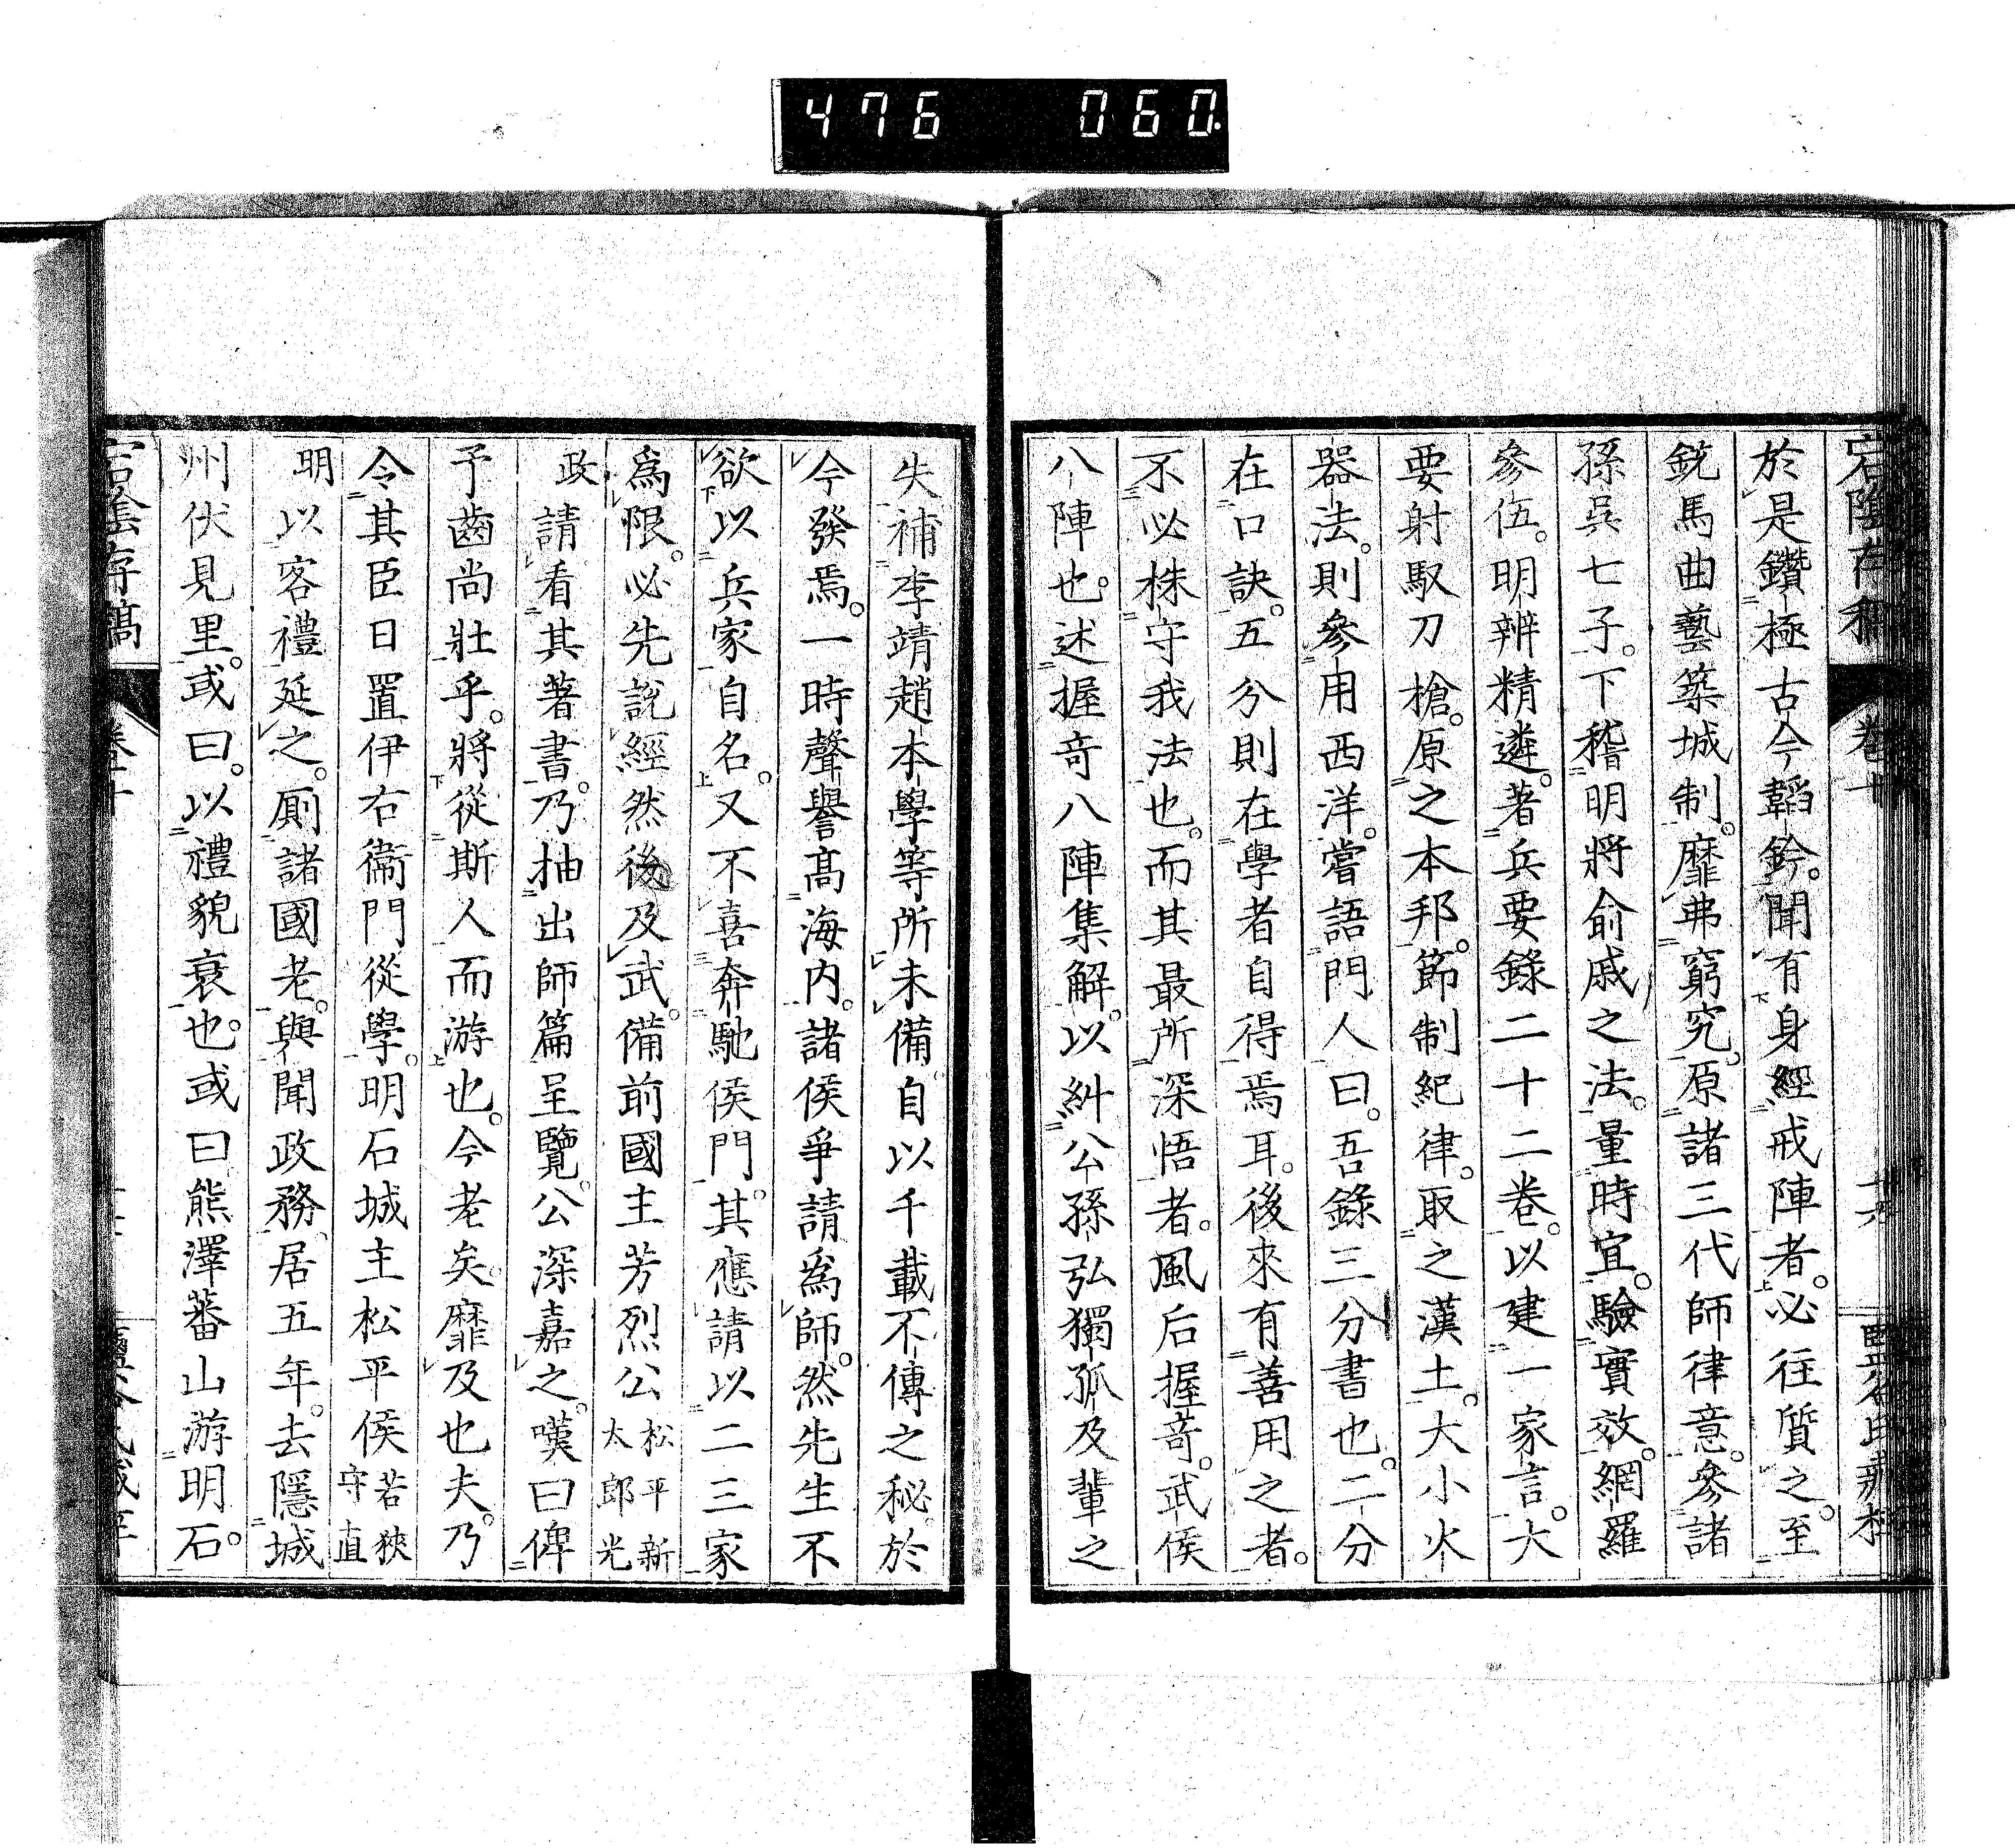 476 060.
宕陰存稿 卷十
於是鑽極古今韜鈐。聞有身經戒陣者。必往質之。至
銃馬曲藝築城制。靡弗窮究。原諸三代師律意。參諸
孫吳七子。下稽明將俞戚之法。量時宜。驗實效。網羅
參伍。明辨精遴。著兵要錄二十二卷。以建一家言。大
要射馭刀槍。原之本邦。節制紀律。取之漢土。大小火
器法。則參用西洋。嘗語門人曰。吾錄三分書也。二分
在口訣。五分則在學者自得焉耳。後來有善用之者。
不必株守我法也。而其最所深悟者。風后握奇。武侯
八陣也。述握奇八陣集解。以糾公孫弘獨孤及輩之
失補李靖趙本學等所未備自以千載不傳之秘於
今發焉。一時聲譽高海内。諸侯爭請爲師。然先生不
欲以兵家自名。又不喜奔馳侯門。其應請以二三家
爲限。必先說經然後及武。備前國主芳烈公松平新太郎光
政請看其著書。乃抽出師篇呈覽。公深嘉之。嘆曰俾
予齒尚壯乎。將從斯人而游也。今老矣靡及也夫。乃
令其臣日置伊右衞門從學。明石城主松平侯若狹守直
明以客禮延之。廁諸國老。與聞政務。居五年。去隱城
州伏見里。或曰。以禮貌衰也。或曰熊澤蕃山游明石。
宕陰存稿 卷十